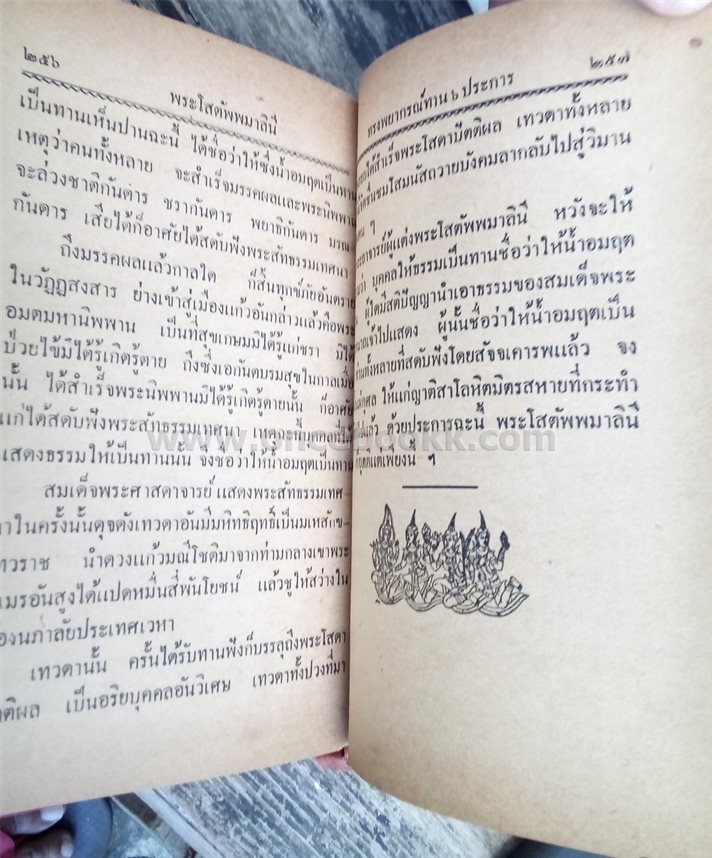 ๒๕๖
พระโสตัพพมาลินี
เป็นทานเห็นปานฉะนี้ ได้ชื่อว่าให้ซึ่งน้ำอมฤตเป็นทาน
เหตุว่าคนทั้งหลาย จะสำเร็จมรรคผลและพระนิพพาน
จะล่วงชาติกันดาร ชรากันดาร พยาธิกันดาร มรณะ
กันดาร เสียได้ก็อาศัยได้สดับฟังพระสัทธรรมเทศนา
ถึงมรรคผลแล้วกาลใด ก็สิ้นทุกข์ภัยอันตราย
ในวัฏฏสงสาร ย่างเข้าสู่เมืองแก้วอันกล่าวแล้วคือพระ
อมตมหานิพพาน เป็นที่สุขเกษมมิได้รู้แก่ชรา มิได้
ป่วยไข้มิได้รู้เกิดรู้ตาย ถึงซึ่งเอกันตบรมสุขในกาลเมื่อ
นั้น ได้สำเร็จพระนิพพานมิได้รู้เกิดรู้ตายนั้น ก็อาศัย
แก่ได้สดับฟังพระสัทธรรมเทศนา เหตุฉะนั้น
แสดงธรรมให้เป็นทานนั้น จึงชื่อว่าให้น้ำอมฤตเป็นทาน
สมเด็จพระศาสดาจารย์ แสดงพระสัทธรรมเทศ
นาในครั้งนั้นดุจดังเทวดาอันมีมหิทธิฤทธิ์เป็นมเหสักข-
เทวราช นำดวงแก้วมณีโชติมาจากท่ามกลางเขาพระ
เมรุอันสูงได้แปดหมื่นสี่พันโยชน์ แล้วชูให้สว่างใน
ห้องนภาลัยประเทศเวหา
เทวดานั้น ครั้นได้รับทานฟังก็บรรลุถึงพระโสดา
ปัตติผล เป็นอริยบุคคลอันวิเศษ เทวดาทั้งปวงที่มา
๒๕๗
ทรงพยากรณ์ทาน ๖ ประการ
ได้สำเร็จพระโสดาปัตติผล เทวดาทั้งหลาย
ชื่นชมโสมนัสถวายบังคมลากลับไปสู่วิมาน
ๆ
อาจารย์ผู้แต่งพระโสตัพพมาลินี หวังจะให้
ว่า บุคคลให้ธรรมเป็นทานชื่อว่าให้น้ำอมฤต
ผู้ใดมีสติปัญญานำเอาธรรมของสมเด็จพระ
เจ้าไปแสดง ผู้นั้นชื่อว่าให้น้ำอมฤตเป็น
ท่านทั้งหลายที่สดับฟังโดยสัจจเคารพแล้ว จง
ให้แก่ญาติสาโลหิตมิตรสหายที่กระทำ
แล้ว ด้วยประการฉะนี้ พระโสตัพพมาลินี
ยุติแต่เพียงนี้ ฯ